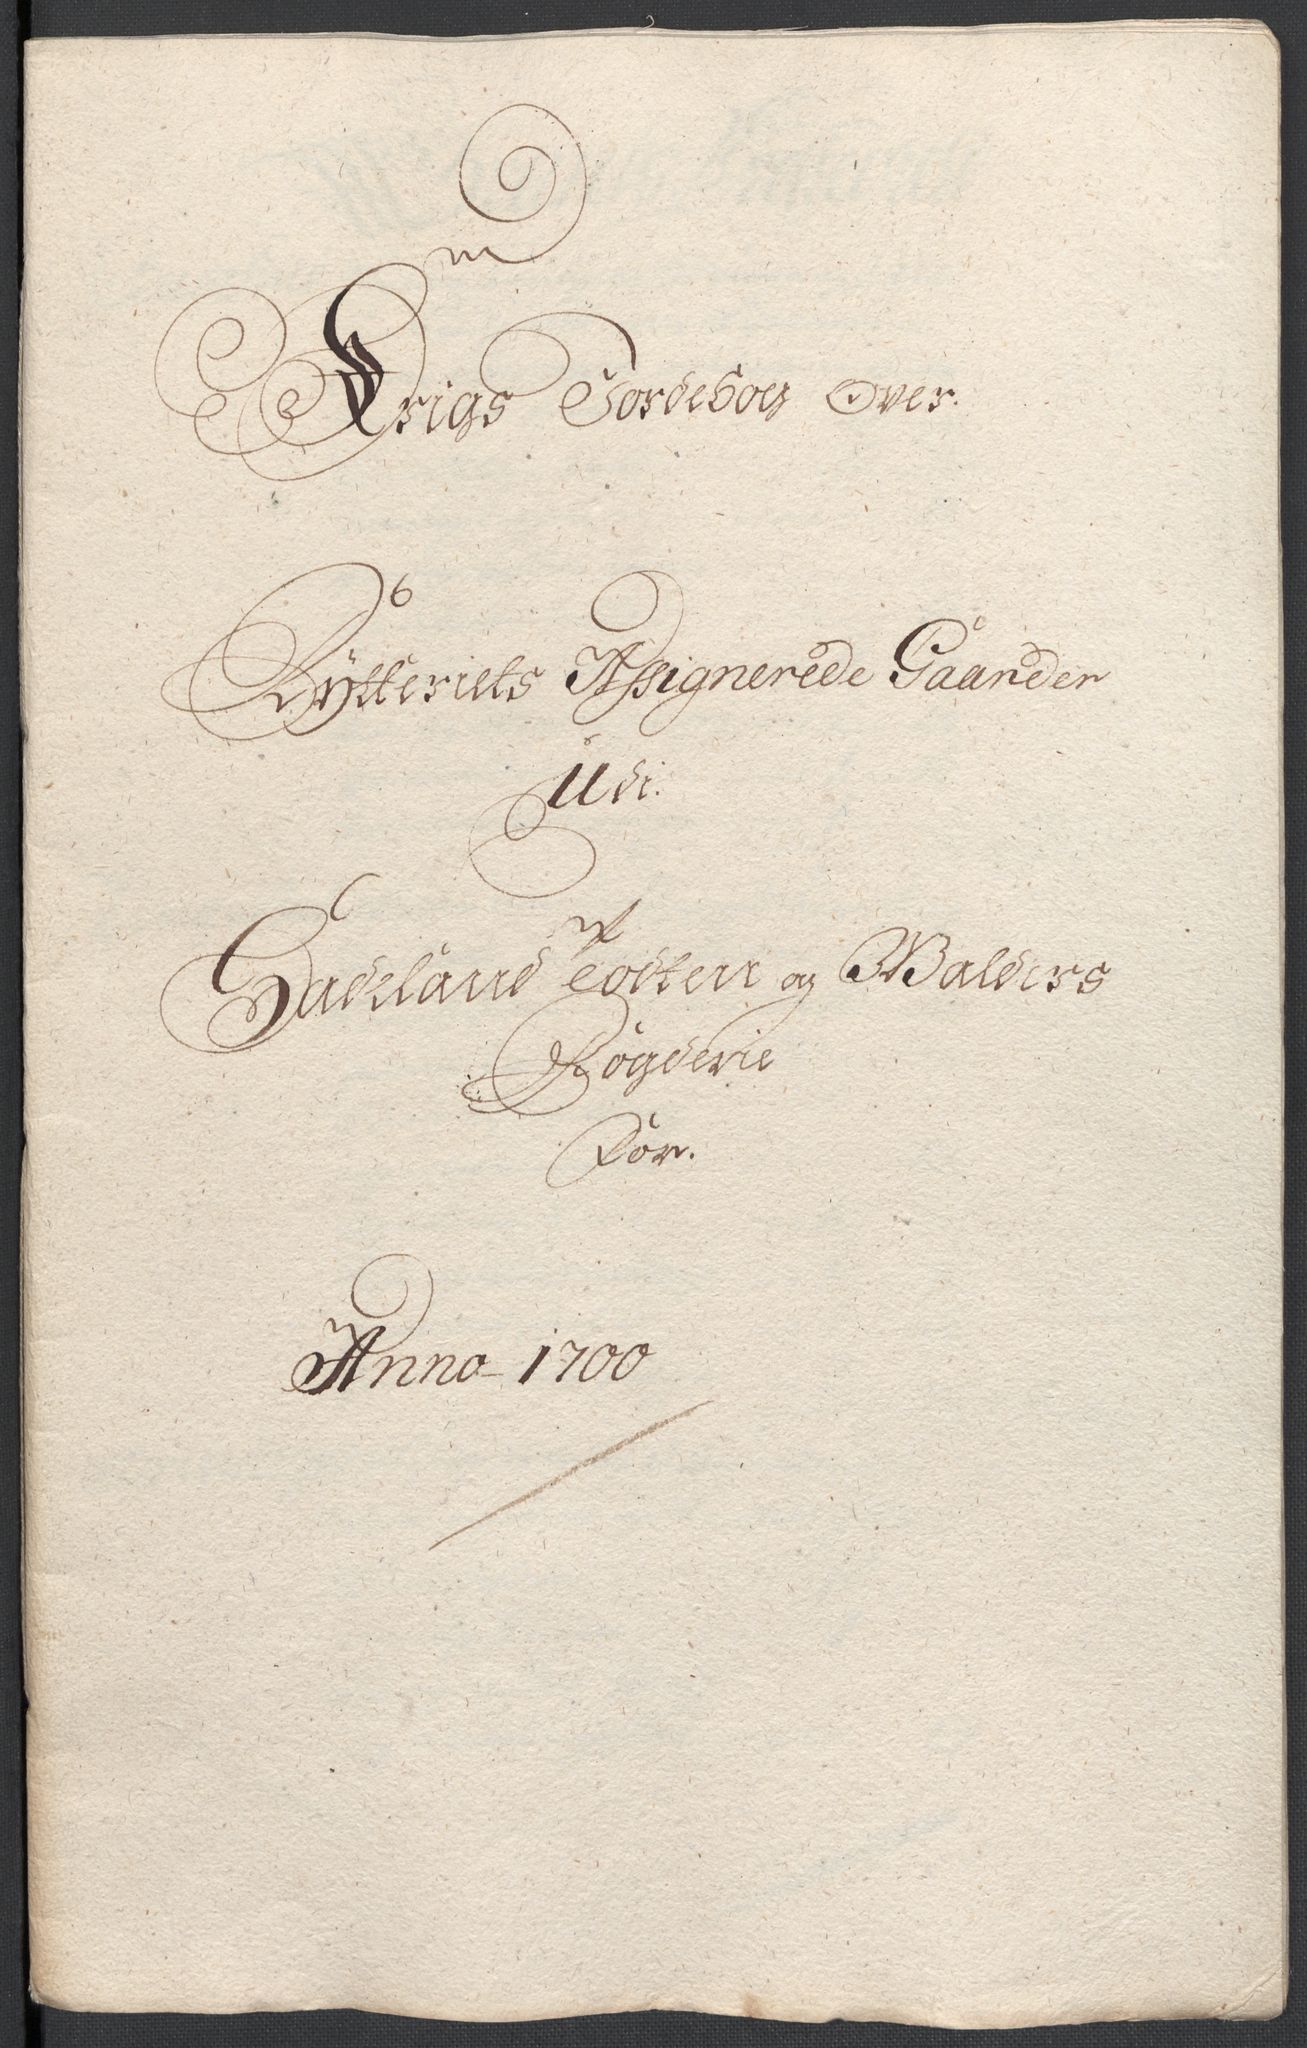 Krigs Jordebog Over.
Rÿtteriets Assignerede Gaarder
Udi.
Hadeland Todten og Walders
Fogderie
For.
Anno 1700